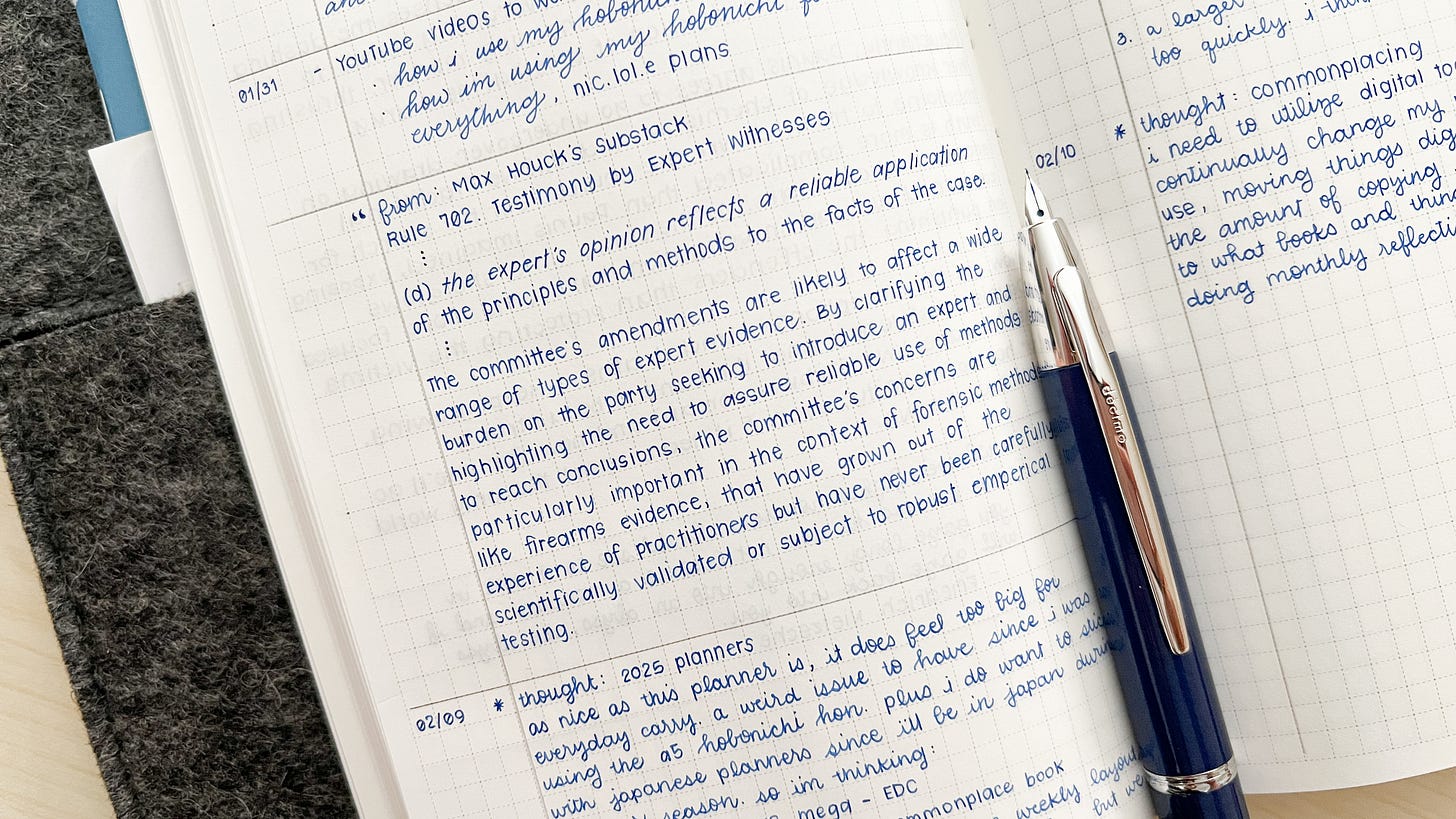 - YouTube videos to
how i use my hobonichi
01/31
· how im using my hobonichi
everything, nic.lol.e plans
" from: Max Houck's Substack
Rule 702. Testimony by Expert Witnesses
⋮
(d) the expert's opinion reflects a reliable application
of the principles and methods to the facts of the case.
⋮
The committee's amendments are likely to affect a wide
range of types of expert evidence. By clarifying the
burden on the party seeking to introduce an expert and
highlighting the need to assure reliable use of methods
to reach conclusions, the committee's concerns are
particularly important in the context of forensic methods
like firearms evidence, that have grown out of the
experience of practitioners but have never been carefully
scientifically validated or subject to robust emperical
testing.
02/09 * thought: 2025 planners
as nice as this planner is, it does feel too big for
everyday carry. a weird issue to have since i was
using the a5 hobonichi hon. plus i do want to
with japanese planners since ill be in japan during
season. so im thinking:
mega - EDC
commonplace book
weekly
but
3. a larger
too quickly. i
02/10 * thought: commonplacing
i need to utilize digital
continually change my
use, moving things
the amount of copying
to what books and
doing monthly
decimo